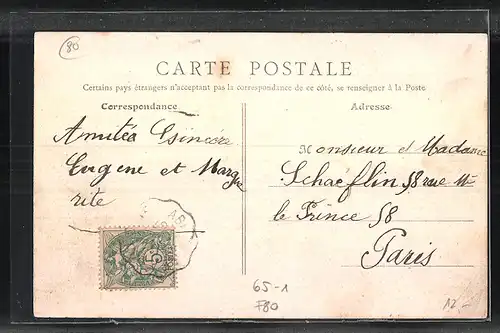 80
CARTE POSTALE
Certains pays étrangers n'acceptant pas la correspondance de ce côté, se renseigner à la Poste
Correspondance
Amitiés Sincères
Eugene et Margue
rite
Adresse
Monsieur et Madame
Schaéflin 58 rue Mr
le Prince 58
Paris
5
65-1
F80
12.-